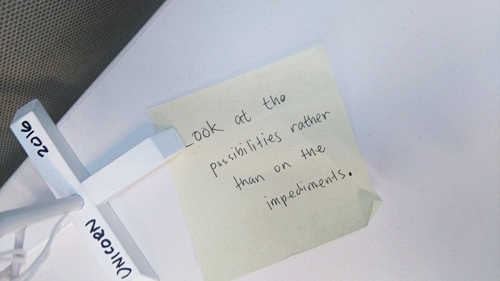 Look at the
possibilities rather
than on the
impediments.
2016
UNICORN